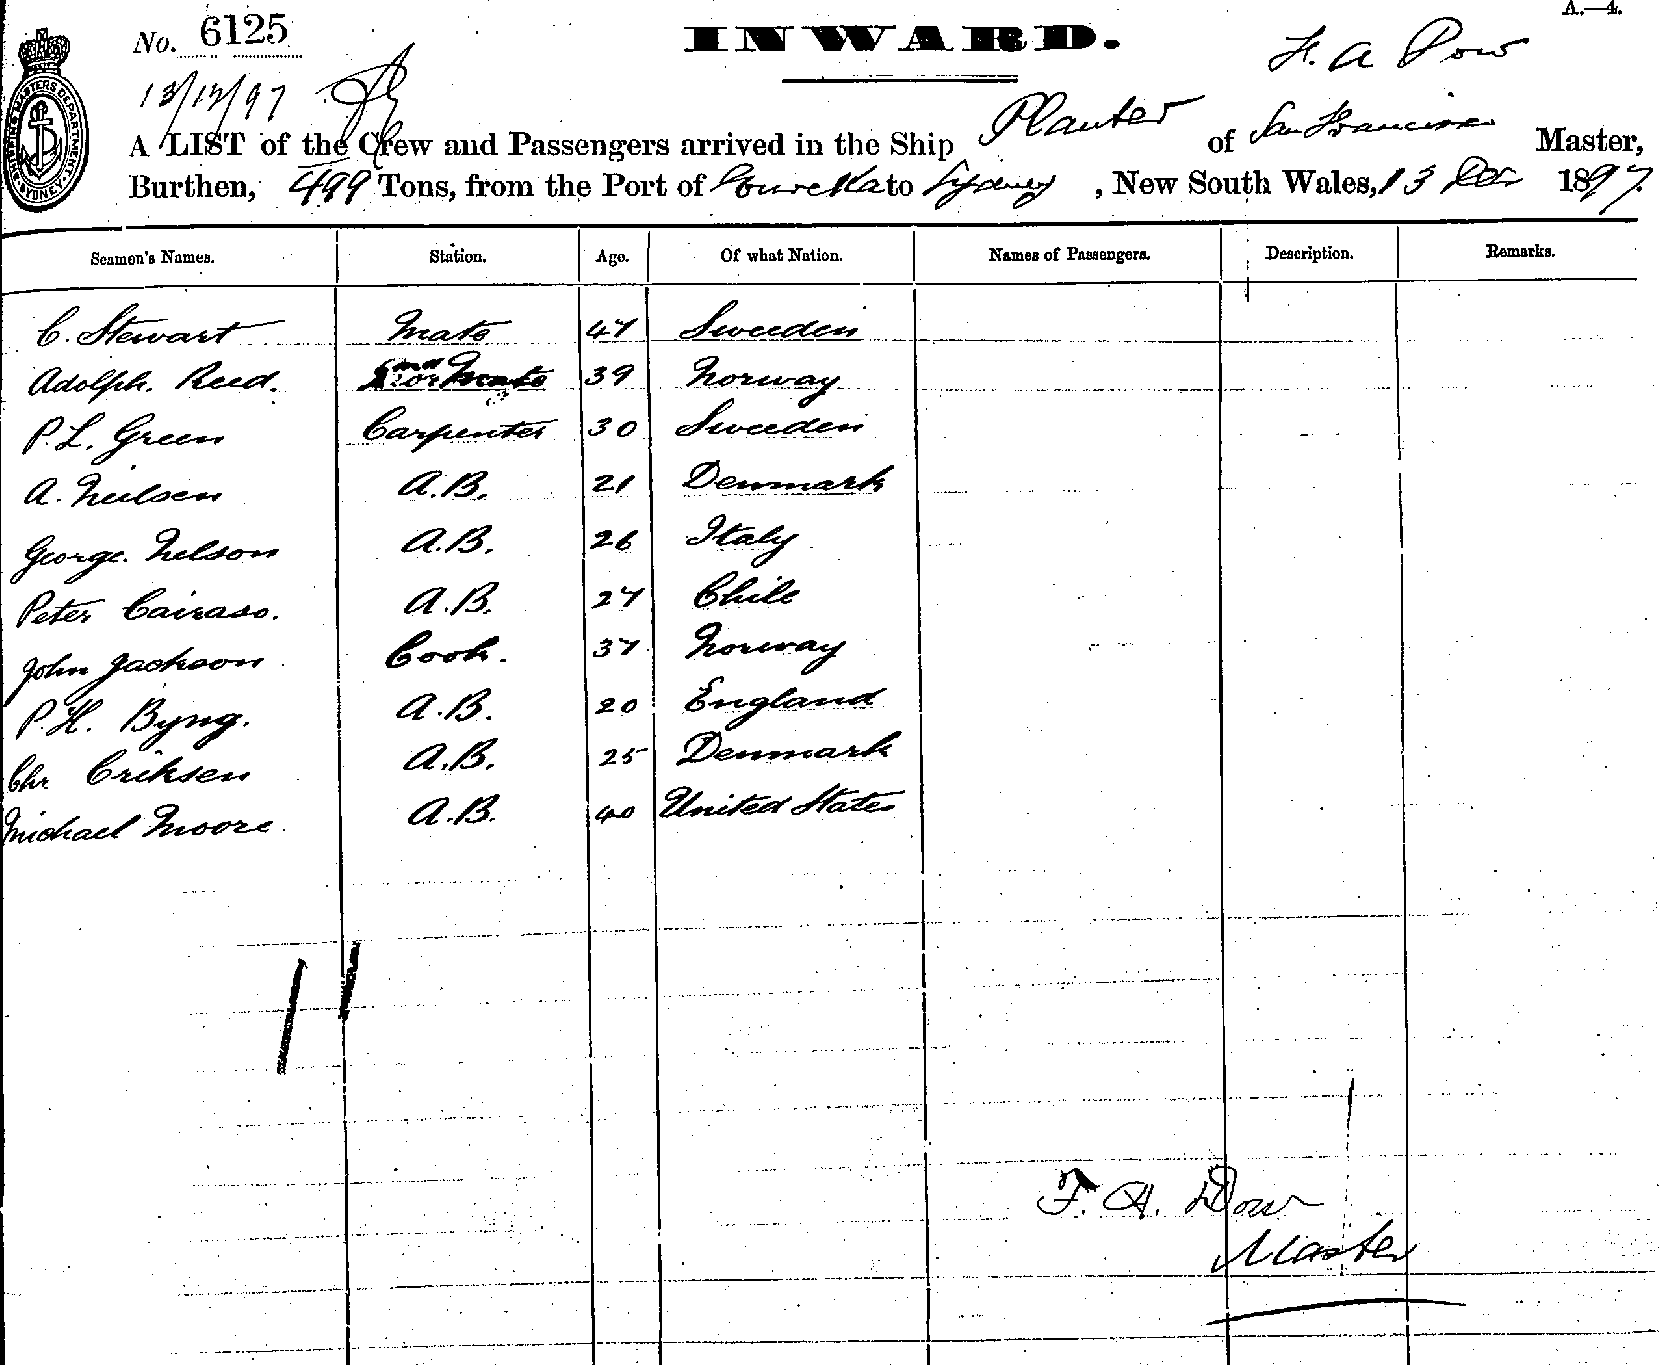 A.—4.
No. 6125
INWARD.
13/12/97
F. A Dow
A LIST of the Crew and Passengers arrived in the Ship Planter of San Francisco Master,
Burthen, 499 Tons, from the Port of to Sydney, New South Wales, 13 Dec 1897
Seamen's Names. Station. Age. Of what Nation. Names of Passengers. Description. Remarks.
C. Stewart Mate 47 Sweeden
Adolph. Reed. 2nd Mate 39 Norway
P. L. Green Carpenter 30 Sweeden
A. Neilsen A.B. 21 Denmark
George. Nelson A.B. 26 Italy
Peter Cairaso. A.B. 27 Chile
John Jackson Cook. 37 Norway
P. H. Byng. A.B. 20 England
Chr Eriksen A.B. 25 Denmark
Michael Moore. A.B. 40 United States
11
F. A. Dow
Master